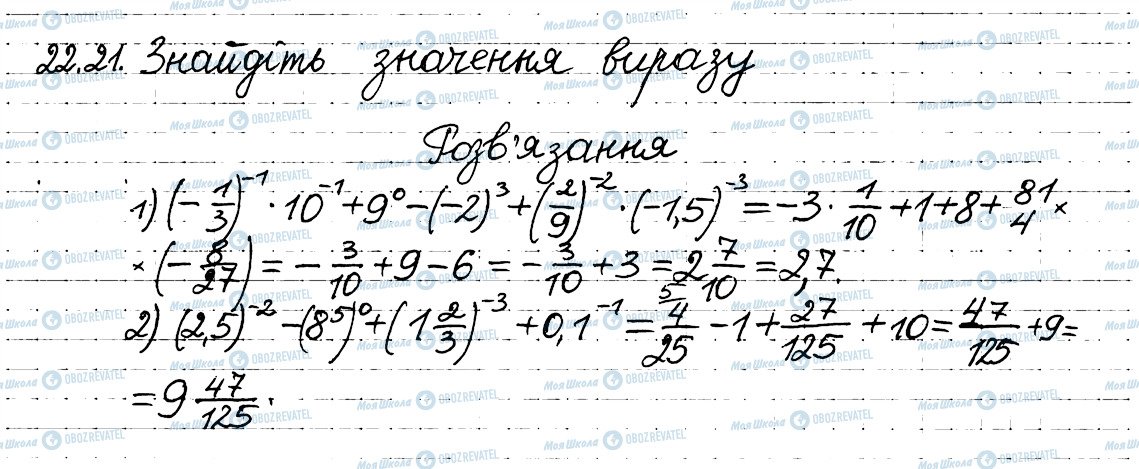 22.21. Знайдіть значення виразу
Розв'язання
1) (-1/3)^-1 · 10^-1 + 9^0 - (-2)^3 + (2/9)^-2 · (-1,5)^-3 = -3 · 1/10 + 1 + 8 + 81/4 ×
× (-8/27) = -3/10 + 9 - 6 = -3/10 + 3 = 2 7/10 = 2,7.
2) (2,5)^-2 - (8^5)^0 + (1 2/3)^-3 + 0,1^-1 = 4/25 (5/ - 1 + 27/125 + 10 = 47/125 + 9 =
= 9 47/125.